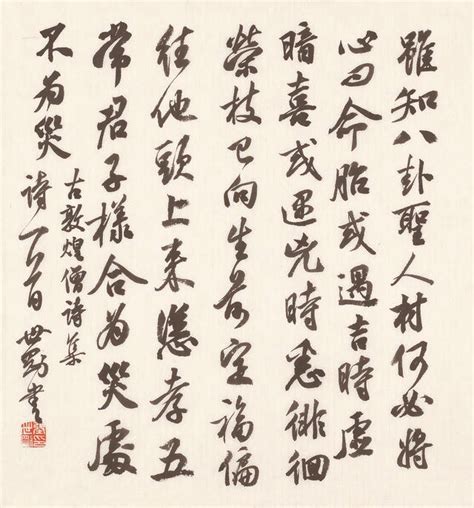 雖知八卦聖人材何必將
心命胎或遇吉時虛
暗喜或兇時徘徊
榮枝已向生前定福偏
往他頭上來孝五
常君子樣合為哭處
不為哭
古敦煌僧詩集
詩一首書